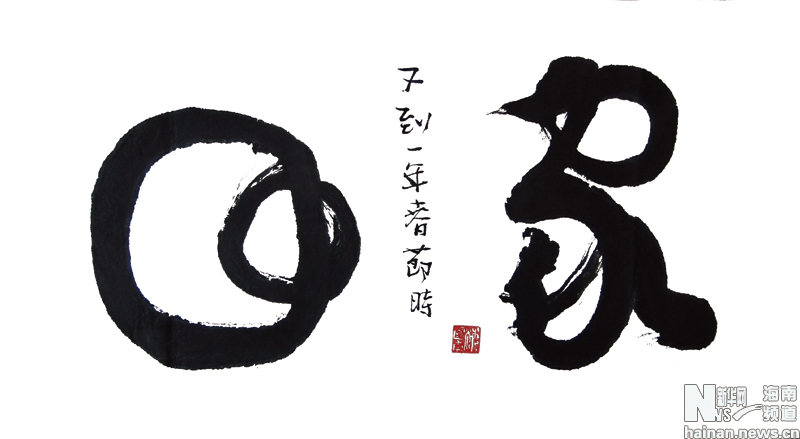 回家
又到一年春節時
NEWS 新华网 海南频道
hainan.news.cn